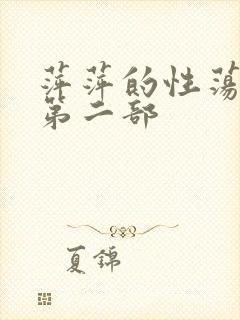 萍萍的性荡
第二部
夏锦